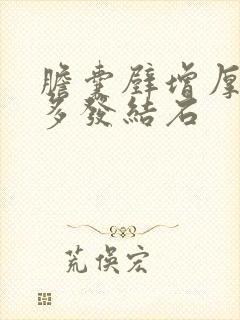 膽囊壁增厚
多發結石
荒俁宏